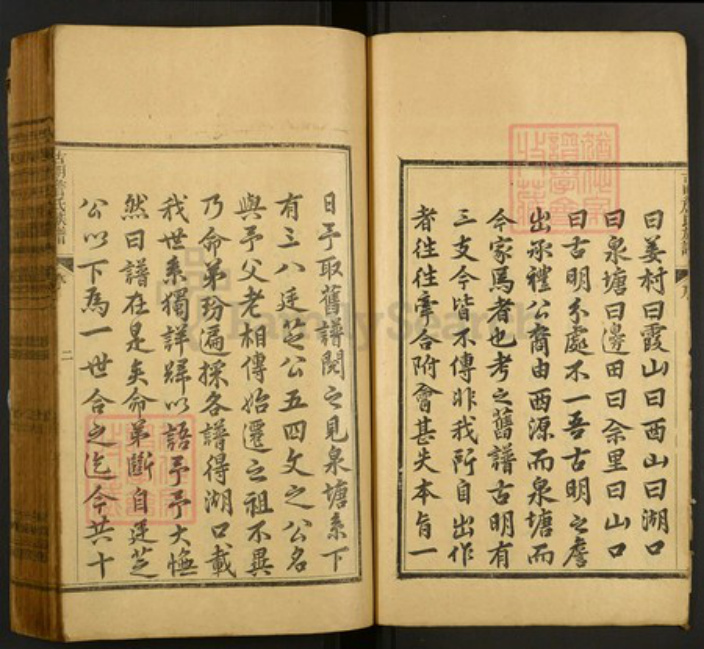 曰姜村曰霞山曰西山曰湖口
曰泉塘曰邊田曰佘里曰山口
曰古明分處不一吾古明之詹
出承禮公裔由西源而泉塘而
今家焉者也考之舊譜古明有
三支今皆不傳非我所自出作
者徃徃牽合附會甚失本旨一
日予取舊譜閱之見泉塘系下
有三八廷芝公五四文之公名
與予父老相傳始遷之祖不異
乃命弟玢遍採各譜得湖口載
我世系獨詳歸以語予予大憮
然曰譜在是矣命弟斷自廷芝
公以下為一世合之迄今共十
古明詹氏族譜
二
FamilySearch